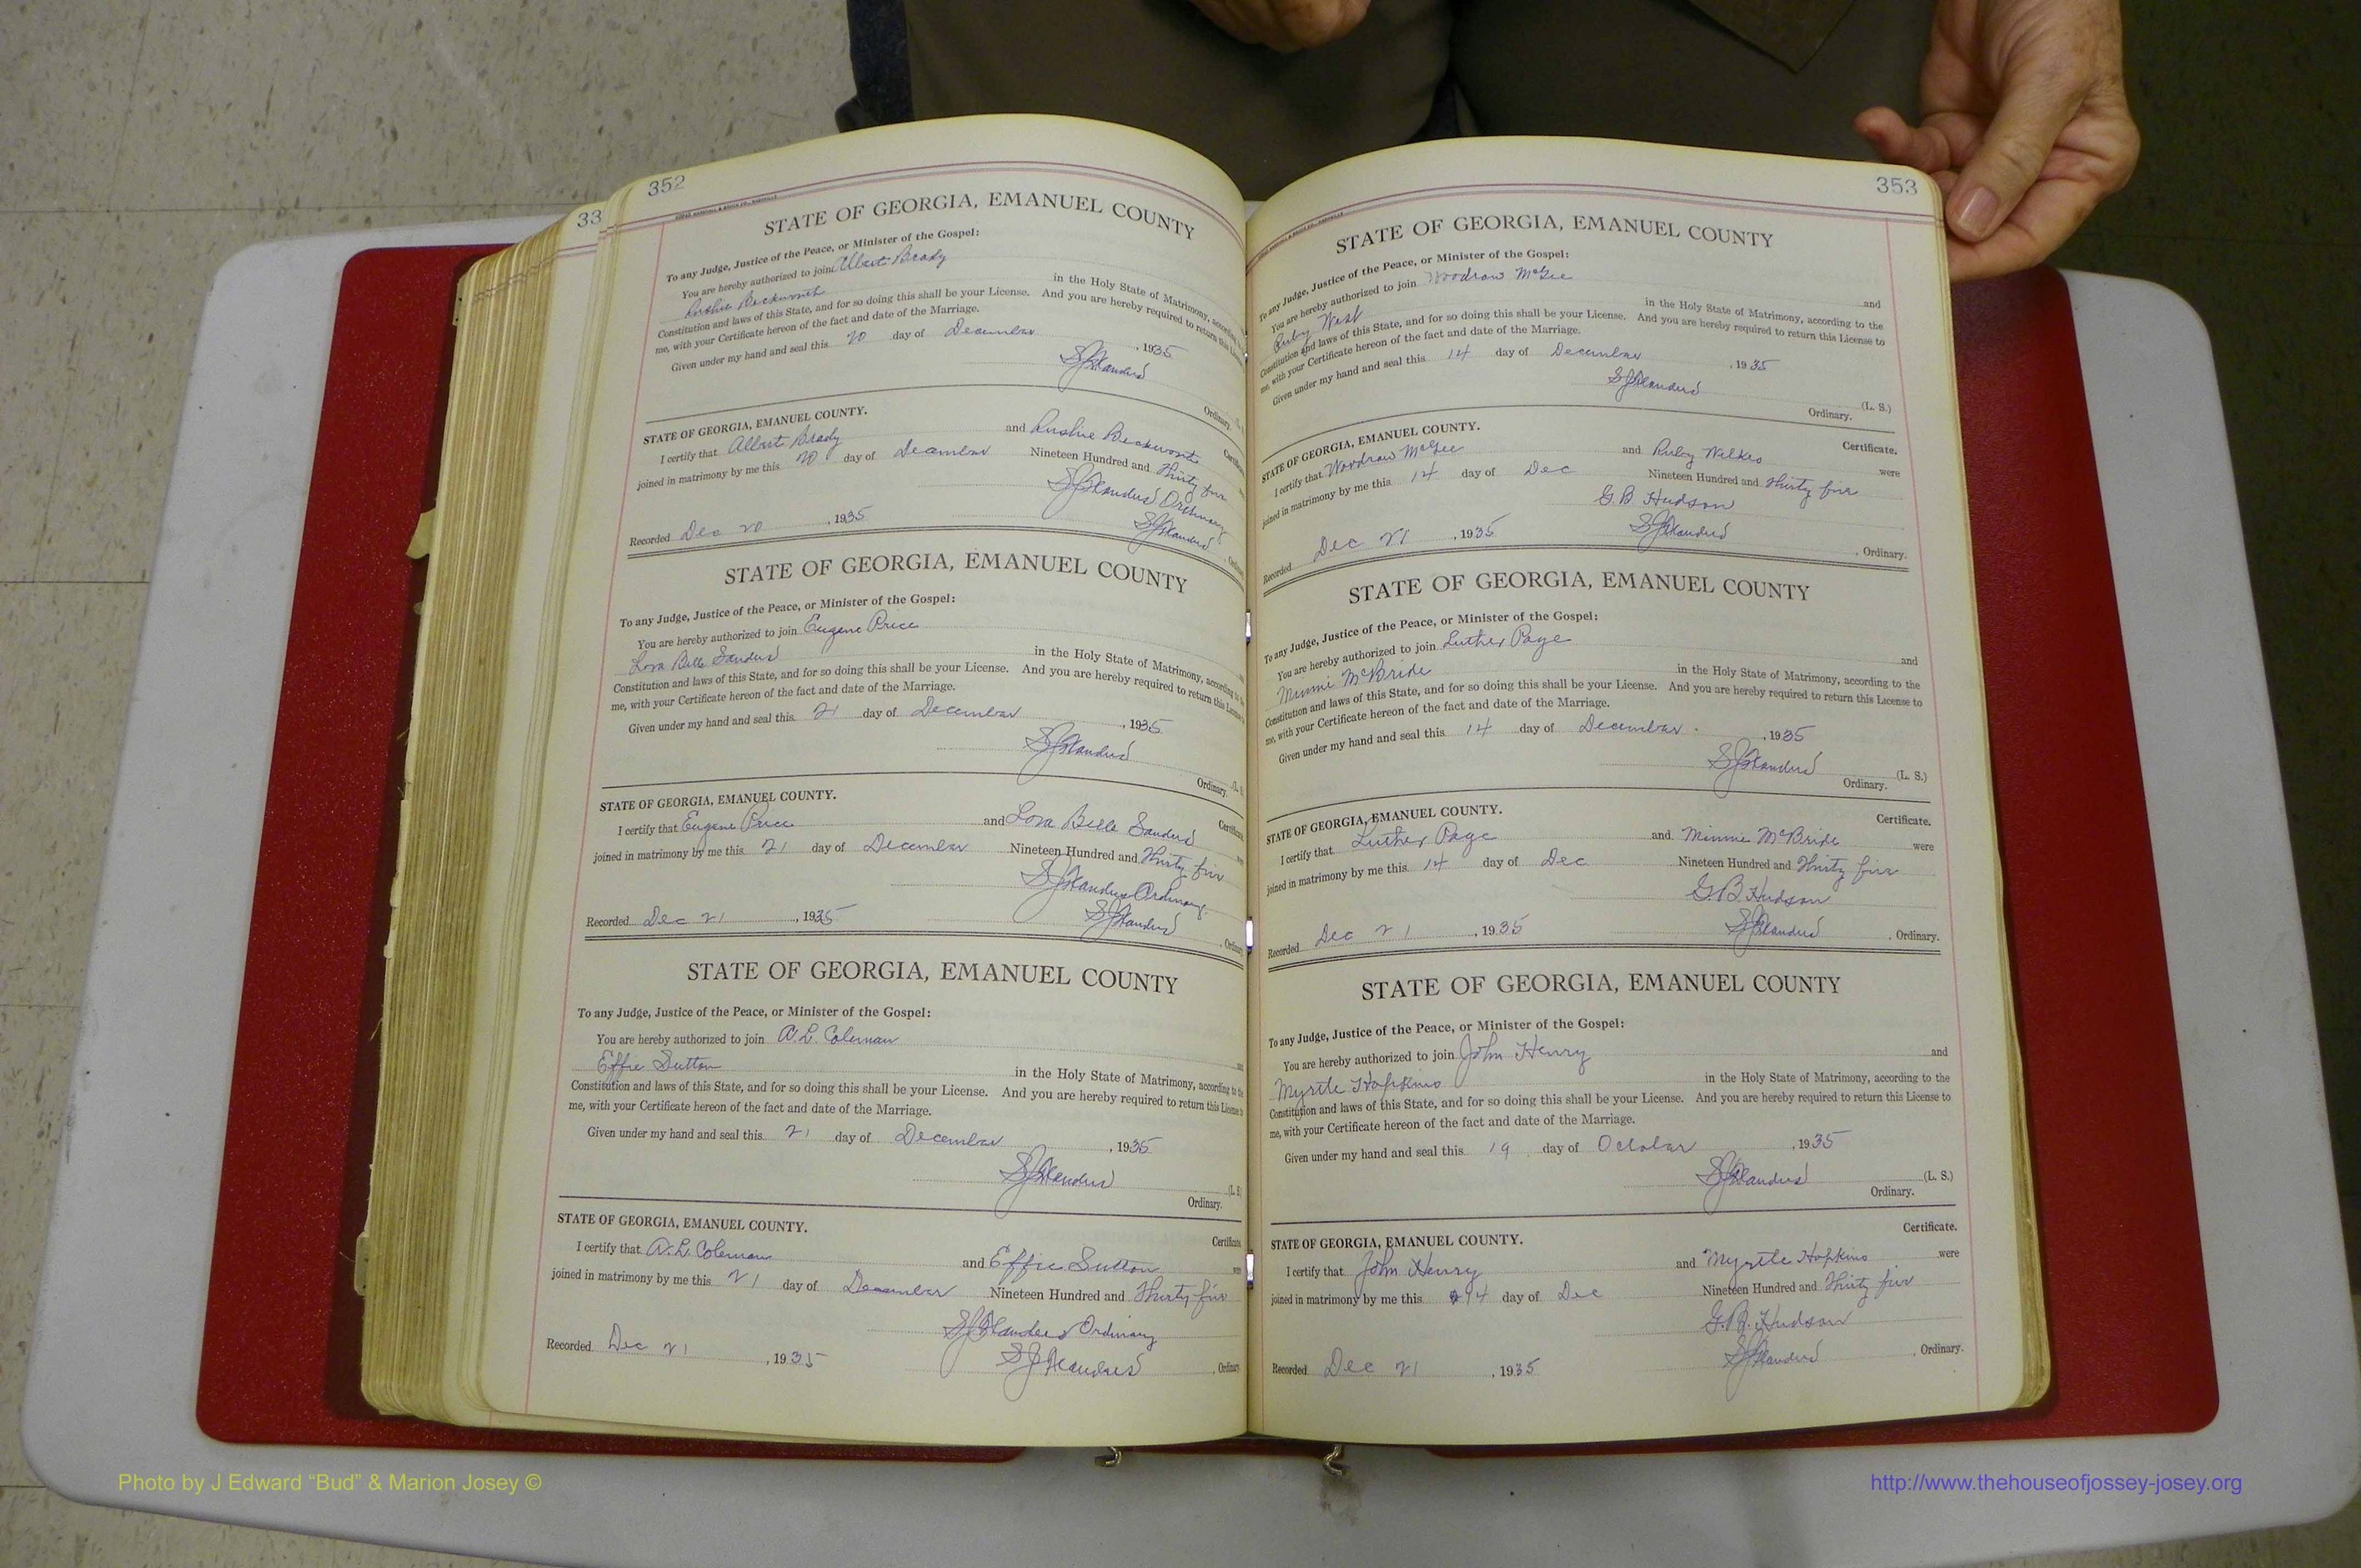 33
352
STATE OF GEORGIA, EMANUEL COUNTY
To any Judge, Justice of the Peace, or Minister of the Gospel:
You are hereby authorized to join Albert Brady
Beckworth in the Holy State of Matrimony,
Constitution and laws of this State, and for so doing this shall be your License. And you are hereby required to return this
me, with your Certificate hereon of the fact and date of the Marriage.
Given under my hand and seal this 20 day of December, 1935
Ordinary.
STATE OF GEORGIA, EMANUEL COUNTY.
I certify that Albert Brady and Beckworth
joined in matrimony by me this 20 day of December Nineteen Hundred and Thirty five
Ordinary
Recorded Dec 20, 1935
STATE OF GEORGIA, EMANUEL COUNTY
To any Judge, Justice of the Peace, or Minister of the Gospel:
You are hereby authorized to join Eugene Price
Lora Belle Sanders in the Holy State of Matrimony,
Constitution and laws of this State, and for so doing this shall be your License. And you are hereby required to return this License
me, with your Certificate hereon of the fact and date of the Marriage.
Given under my hand and seal this 21 day of December, 1935
Ordinary.
STATE OF GEORGIA, EMANUEL COUNTY.
I certify that Eugene Price and Lora Belle Sanders
joined in matrimony by me this 21 day of December Nineteen Hundred and Thirty five
Ordinary
Recorded Dec 21, 1935
STATE OF GEORGIA, EMANUEL COUNTY
To any Judge, Justice of the Peace, or Minister of the Gospel:
You are hereby authorized to join A. L. Coleman
Effie Sutton in the Holy State of Matrimony, according to the
Constitution and laws of this State, and for so doing this shall be your License. And you are hereby required to return this License
me, with your Certificate hereon of the fact and date of the Marriage.
Given under my hand and seal this 21 day of December, 1935
(L. S
Ordinary.
STATE OF GEORGIA, EMANUEL COUNTY.
Certificate
I certify that A. L. Coleman and Effie Sutton
joined in matrimony by me this 21 day of December Nineteen Hundred and Thirty five
Ordinary
Recorded Dec 21, 1935
353
STATE OF GEORGIA, EMANUEL COUNTY
To any Judge, Justice of the Peace, or Minister of the Gospel:
You are hereby authorized to join Woodrow McGee and
Ruby West in the Holy State of Matrimony, according to the
Constitution and laws of this State, and for so doing this shall be your License. And you are hereby required to return this License to
me, with your Certificate hereon of the fact and date of the Marriage.
Given under my hand and seal this 14 day of December, 1935
(L. S.)
Ordinary.
STATE OF GEORGIA, EMANUEL COUNTY.
Certificate.
I certify that Woodrow McGee and Ruby Wilkes were
joined in matrimony by me this 14 day of Dec Nineteen Hundred and Thirty five
G. B. Hudson
Recorded Dec 21, 1935 Ordinary.
STATE OF GEORGIA, EMANUEL COUNTY
To any Judge, Justice of the Peace, or Minister of the Gospel:
You are hereby authorized to join Luther Page and
Minnie McBride in the Holy State of Matrimony, according to the
Constitution and laws of this State, and for so doing this shall be your License. And you are hereby required to return this License to
me, with your Certificate hereon of the fact and date of the Marriage.
Given under my hand and seal this 14 day of December, 1935
(L. S.)
Ordinary.
STATE OF GEORGIA, EMANUEL COUNTY.
Certificate.
I certify that Luther Page and Minnie McBride were
joined in matrimony by me this 14 day of Dec Nineteen Hundred and Thirty five
G. B. Hudson
Recorded Dec 21, 1935 Ordinary.
STATE OF GEORGIA, EMANUEL COUNTY
To any Judge, Justice of the Peace, or Minister of the Gospel:
You are hereby authorized to join John Henry and
Myrtle Hopkins in the Holy State of Matrimony, according to the
Constitution and laws of this State, and for so doing this shall be your License. And you are hereby required to return this License to
me, with your Certificate hereon of the fact and date of the Marriage.
Given under my hand and seal this 19 day of October, 1935
(L. S.)
Ordinary.
STATE OF GEORGIA, EMANUEL COUNTY.
Certificate.
I certify that John Henry and Myrtle Hopkins were
joined in matrimony by me this 14 day of Dec Nineteen Hundred and Thirty five
G. B. Hudson
Recorded Dec 21, 1935 Ordinary.
Photo by J Edward “Bud” & Marion Josey ©
http://www.thehouseofjossey-josey.org